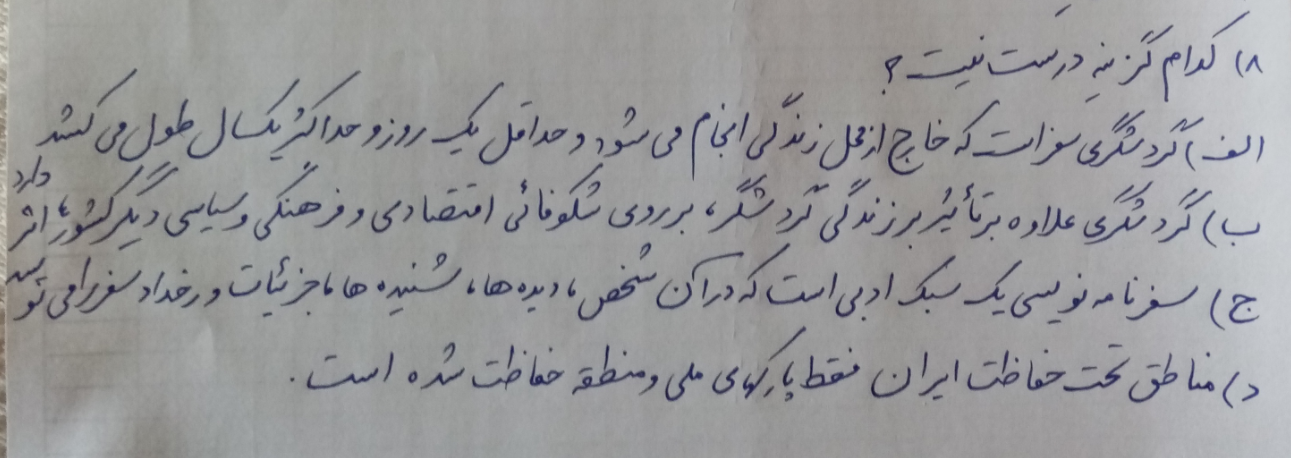 ۸) کدام گزینه درست نیست؟
الف) گردشگری سفر است که خاج از محل زندگی انجام می شود و حداقل یک روز و حداکثر یکسال طول می کشد
ب) گردشگری علاوه بر تأثیر بر زندگی گردشگر، بر روی شکوفائی اقتصادی و فرهنگی و سیاسی دیگر کشورها اثر دارد
ج) سفرنامه نویسی یک سبک ادبی است که در آن شخص، دیده ها، شنیده ها، جزئیات و رخداد سفر را می نویسد
د) مناطق تحت حفاظت ایران فقط پارکهای ملی و منطقه حفاظت شده است.